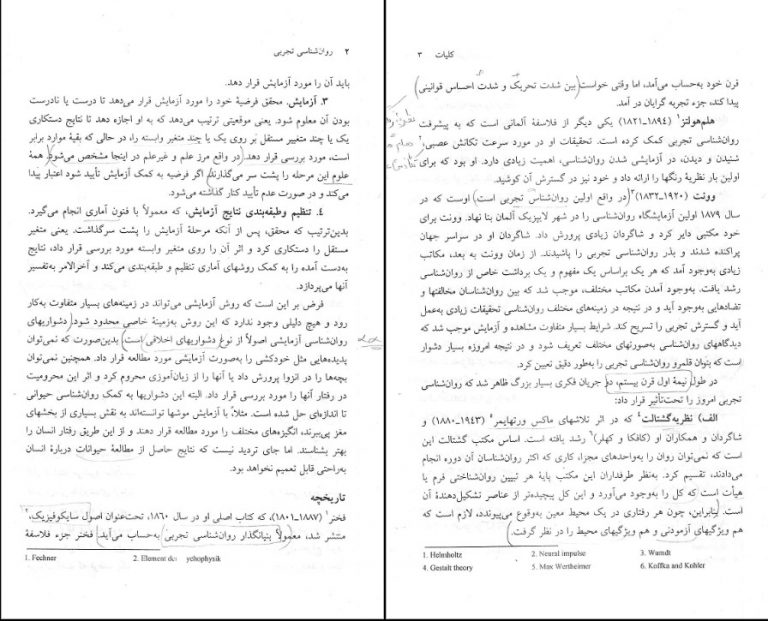 ۲ روان‌شناسی تجربی
باید آن را مورد آزمایش قرار دهد.
۳. آزمایش. محقق فرضیهٔ خود را مورد آزمایش قرار می‌دهد تا درست یا نادرست
بودن آن معلوم شود. یعنی موقعیتی ترتیب می‌دهد که به او اجازه دهد تا نتایج دستکاری
یک یا چند متغیر مستقل بر روی یک یا چند متغیر وابسته را، در حالی که بقیهٔ موارد برابر
است، مورد بررسی قرار دهد. (در واقع مرز علم و غیرعلم در اینجا مشخص می‌شود) همهٔ
علوم این مرحله را پشت سر می‌گذارند. اگر فرضیه به کمک آزمایش تأیید شود اعتبار پیدا
می‌کند و در صورت عدم تأیید کنار گذاشته می‌شود.
۴. تنظیم وطبقه‌بندی نتایج آزمایش، که معمولاً با فنون آماری انجام می‌گیرد.
بدین‌ترتیب که محقق، پس از آنکه مرحلهٔ آزمایش را پشت سرگذاشت. یعنی متغیر
مستقل را دستکاری کرد و اثر آن را روی متغیر وابسته مورد بررسی قرار داد، نتایج
به‌دست آمده را به کمک روشهای آماری تنظیم و طبقه‌بندی می‌کند و آخرالامر به‌تفسیر
آنها می‌پردازد.
فرض بر این است که روش آزمایشی می‌تواند در زمینه‌های بسیار متفاوت به‌کار
رود و هیچ دلیلی وجود ندارد که این روش به‌زمینهٔ خاصی محدود شود. دشواریهای
روان‌شناسی آزمایشی اصولاً از نوع دشواریهای اخلاقی است) بدین‌صورت که نمی‌توان
پدیده‌هایی مثل خودکشی را به‌صورت آزمایشی مورد مطالعه قرار داد. همچنین نمی‌توان
بچه‌ها را در انزوا پرورش داد یا آنها را از زبان‌آموزی محروم کرد و اثر این محرومیت
در رفتار آنها را مورد بررسی قرار داد. البته این دشواریها به کمک روان‌شناسی حیوانی
تا اندازه‌ای حل شده است. مثلاً با آزمایش موشها توانسته‌اند به نقش بسیاری از بخشهای
مغز پی‌ببرند، انگیزه‌های مختلف را مورد مطالعه قرار دهند و از این طریق رفتار انسان را
بهتر بشناسند. اما جای تردید نیست که نتایج حاصل از مطالعهٔ حیوانات دربارهٔ انسان
به‌راحتی قابل تعمیم نخواهد بود.
تاریخچه
فخنر۱ (۱۸۸۷ـ۱۸۰۱)، که کتاب اصلی او در سال ۱۸۶۰، تحت‌عنوان اصول سایکوفیزیک،۲
منتشر شد، معمولاً (بنیانگذار روان‌شناسی تجربی) به‌حساب می‌آید. فخنر جزء فلاسفهٔ
1. Fechner 2. Element der ychophysik
کلیات ۳
قرن خود به‌حساب می‌آمد، اما وقتی خواست (بین شدت تحریک و شدت احساس قوانینی)
پیدا کند، جزء تجربه گرایان در آمد.
هلم‌هولتز۱ (۱۸۹۴ـ۱۸۲۱) یکی دیگر از فلاسفهٔ آلمانی است که به پیشرفت
روان‌شناسی تجربی کمک کرده است. تحقیقات او در مورد سرعت تکانش عصبی،۲
شنیدن و دیدن، در آزمایشی شدن روان‌شناسی، اهمیت زیادی دارد. او بود که برای
اولین بار نظریهٔ رنگها را ارائه داد و خود نیز در گسترش آن کوشید.
وونت (۱۹۲۰ـ۱۸۳۲)۳ (در واقع اولین روان‌شناس تجربی است) اوست که در
سال ۱۸۷۹ اولین آزمایشگاه روان‌شناسی را در شهر لایپزیک آلمان بنا نهاد. وونت برای
خود مکتبی دایر کرد و شاگردان زیادی پرورش داد. شاگردان او در سراسر جهان
پراکنده شدند و بذر روان‌شناسی تجربی را پاشیدند. از زمان وونت به بعد، مکاتب
زیادی به‌وجود آمد که هر یک براساس یک مفهوم و یک برداشت خاص از روان‌شناسی
رشد یافت. به‌وجود آمدن مکاتب مختلف، موجب شد که بین روان‌شناسان مخالفتها و
تضادهایی به‌وجود آید و در نتیجه در زمینه‌های مختلف روان‌شناسی تحقیقات زیادی به‌عمل
آید و گسترش تجربی را تسریع کند. شرایط بسیار متفاوت مشاهده و آزمایش موجب شد که
دیدگاههای روان‌شناسی به‌صورتهای مختلف تعریف شود و در نتیجه امروزه بسیار دشوار
است که بتوان قلمرو روان‌شناسی تجربی را به‌طور دقیق تعیین کرد.
در طول نیمهٔ اول قرن بیستم، دو جریان فکری بسیار بزرگ ظاهر شد که روان‌شناسی
تجربی امروز را تحت‌تأثیر قرار داد:
الف) نظریهٔ گشتالت۴ که در اثر تلاشهای ماکس ورتهایمر۵ (۱۹۴۳ـ۱۸۸۰) و
شاگردان و همکاران او (کافکا و کهلر)۶ رشد یافته است. اساس مکتب گشتالت این
است که نمی‌توان روان را به‌واحدهای مجزا، کاری که اکثر روان‌شناسان آن دوره انجام
می‌دادند، تقسیم کرد. به‌نظر طرفداران این مکتب پایهٔ هر تبیین روان‌شناختی فرم یا
هیأت است که کل را به‌وجود می‌آورد و این کل پیچیده‌تر از عناصر تشکیل‌دهندهٔ آن
است. بنابراین، چون هر رفتاری در یک محیط معین به‌وقوع می‌پیوندد، لازم است که
هم ویژگیهای آزمودنی و هم ویژگیهای محیط را در نظر گرفت.
1. Helmholtz 2. Neural impulse 3. Wundt
4. Gestalt theory 5. Max Wertheimer 6. Koffka and Kohler